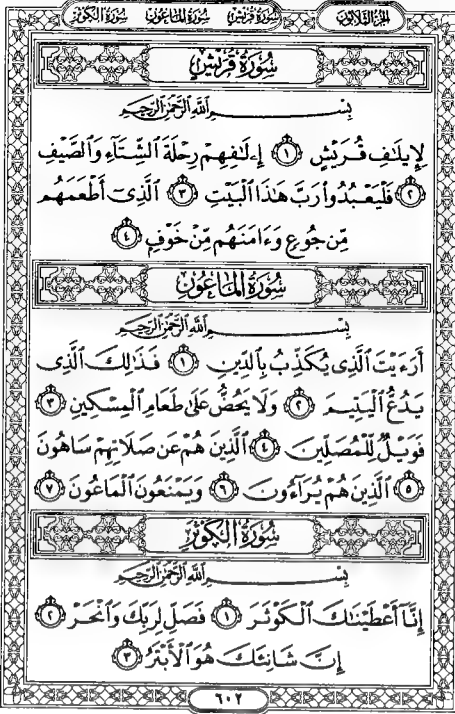 سُورَةُ الكَوْثَر سُورَةُ المَاعُون سُورَةُ قُرَيْش الجُزْءُ الثَّلَاثُونَ
سُورَةُ قُرَيْشٍ
بِسْمِ اللَّهِ الرَّحْمَٰنِ الرَّحِيمِ
لِإِيلَٰفِ قُرَيْشٍ ١ إِۦلَٰفِهِمْ رِحْلَةَ ٱلشِّتَآءِ وَٱلصَّيْفِ
٢ فَلْيَعْبُدُوا۟ رَبَّ هَٰذَا ٱلْبَيْتِ ٣ ٱلَّذِىٓ أَطْعَمَهُم
مِّن جُوعٍ وَءَامَنَهُم مِّنْ خَوْفٍ ٤
سُورَةُ المَاعُونِ
بِسْمِ اللَّهِ الرَّحْمَٰنِ الرَّحِيمِ
أَرَءَيْتَ ٱلَّذِى يُكَذِّبُ بِٱلدِّينِ ١ فَذَٰلِكَ ٱلَّذِى
يَدُعُّ ٱلْيَتِيمَ ٢ وَلَا يَحُضُّ عَلَىٰ طَعَامِ ٱلْمِسْكِينِ ٣
فَوَيْلٌ لِّلْمُصَلِّينَ ٤ ٱلَّذِينَ هُمْ عَن صَلَاتِهِمْ سَاهُونَ
٥ ٱلَّذِينَ هُمْ يُرَآءُونَ ٦ وَيَمْنَعُونَ ٱلْمَاعُونَ ٧
سُورَةُ الكَوْثَرِ
بِسْمِ اللَّهِ الرَّحْمَٰنِ الرَّحِيمِ
إِنَّآ أَعْطَيْنَٰكَ ٱلْكَوْثَرَ ١ فَصَلِّ لِرَبِّكَ وَٱنْحَرْ ٢
إِنَّ شَانِئَكَ هُوَ ٱلْأَبْتَرُ ٣
٦٠٢